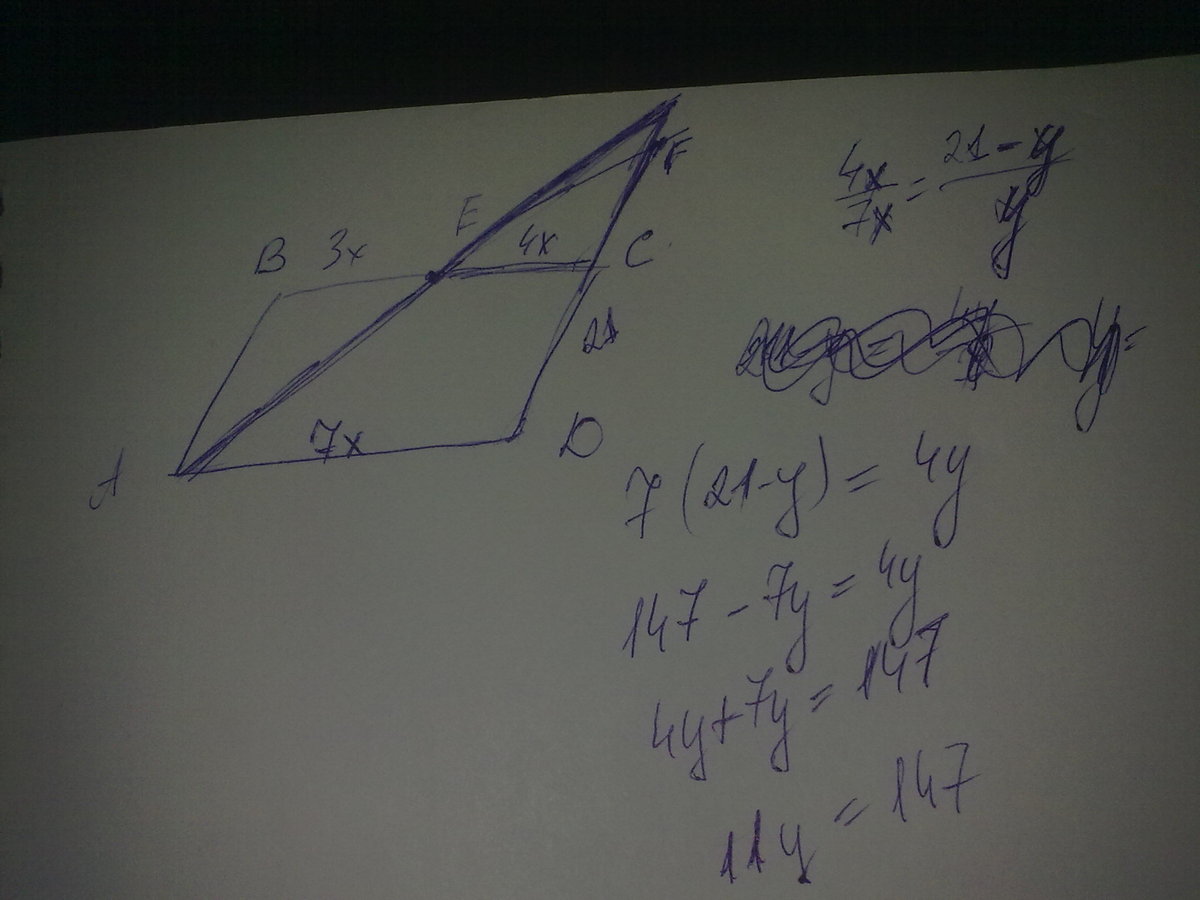 F
E
B 3x
4x
C
21
7x
A
D
4x/7x = 21-y/y
y=
7(21-y)= 4y
147 - 7y = 4y
4y+7y = 147
11y = 147